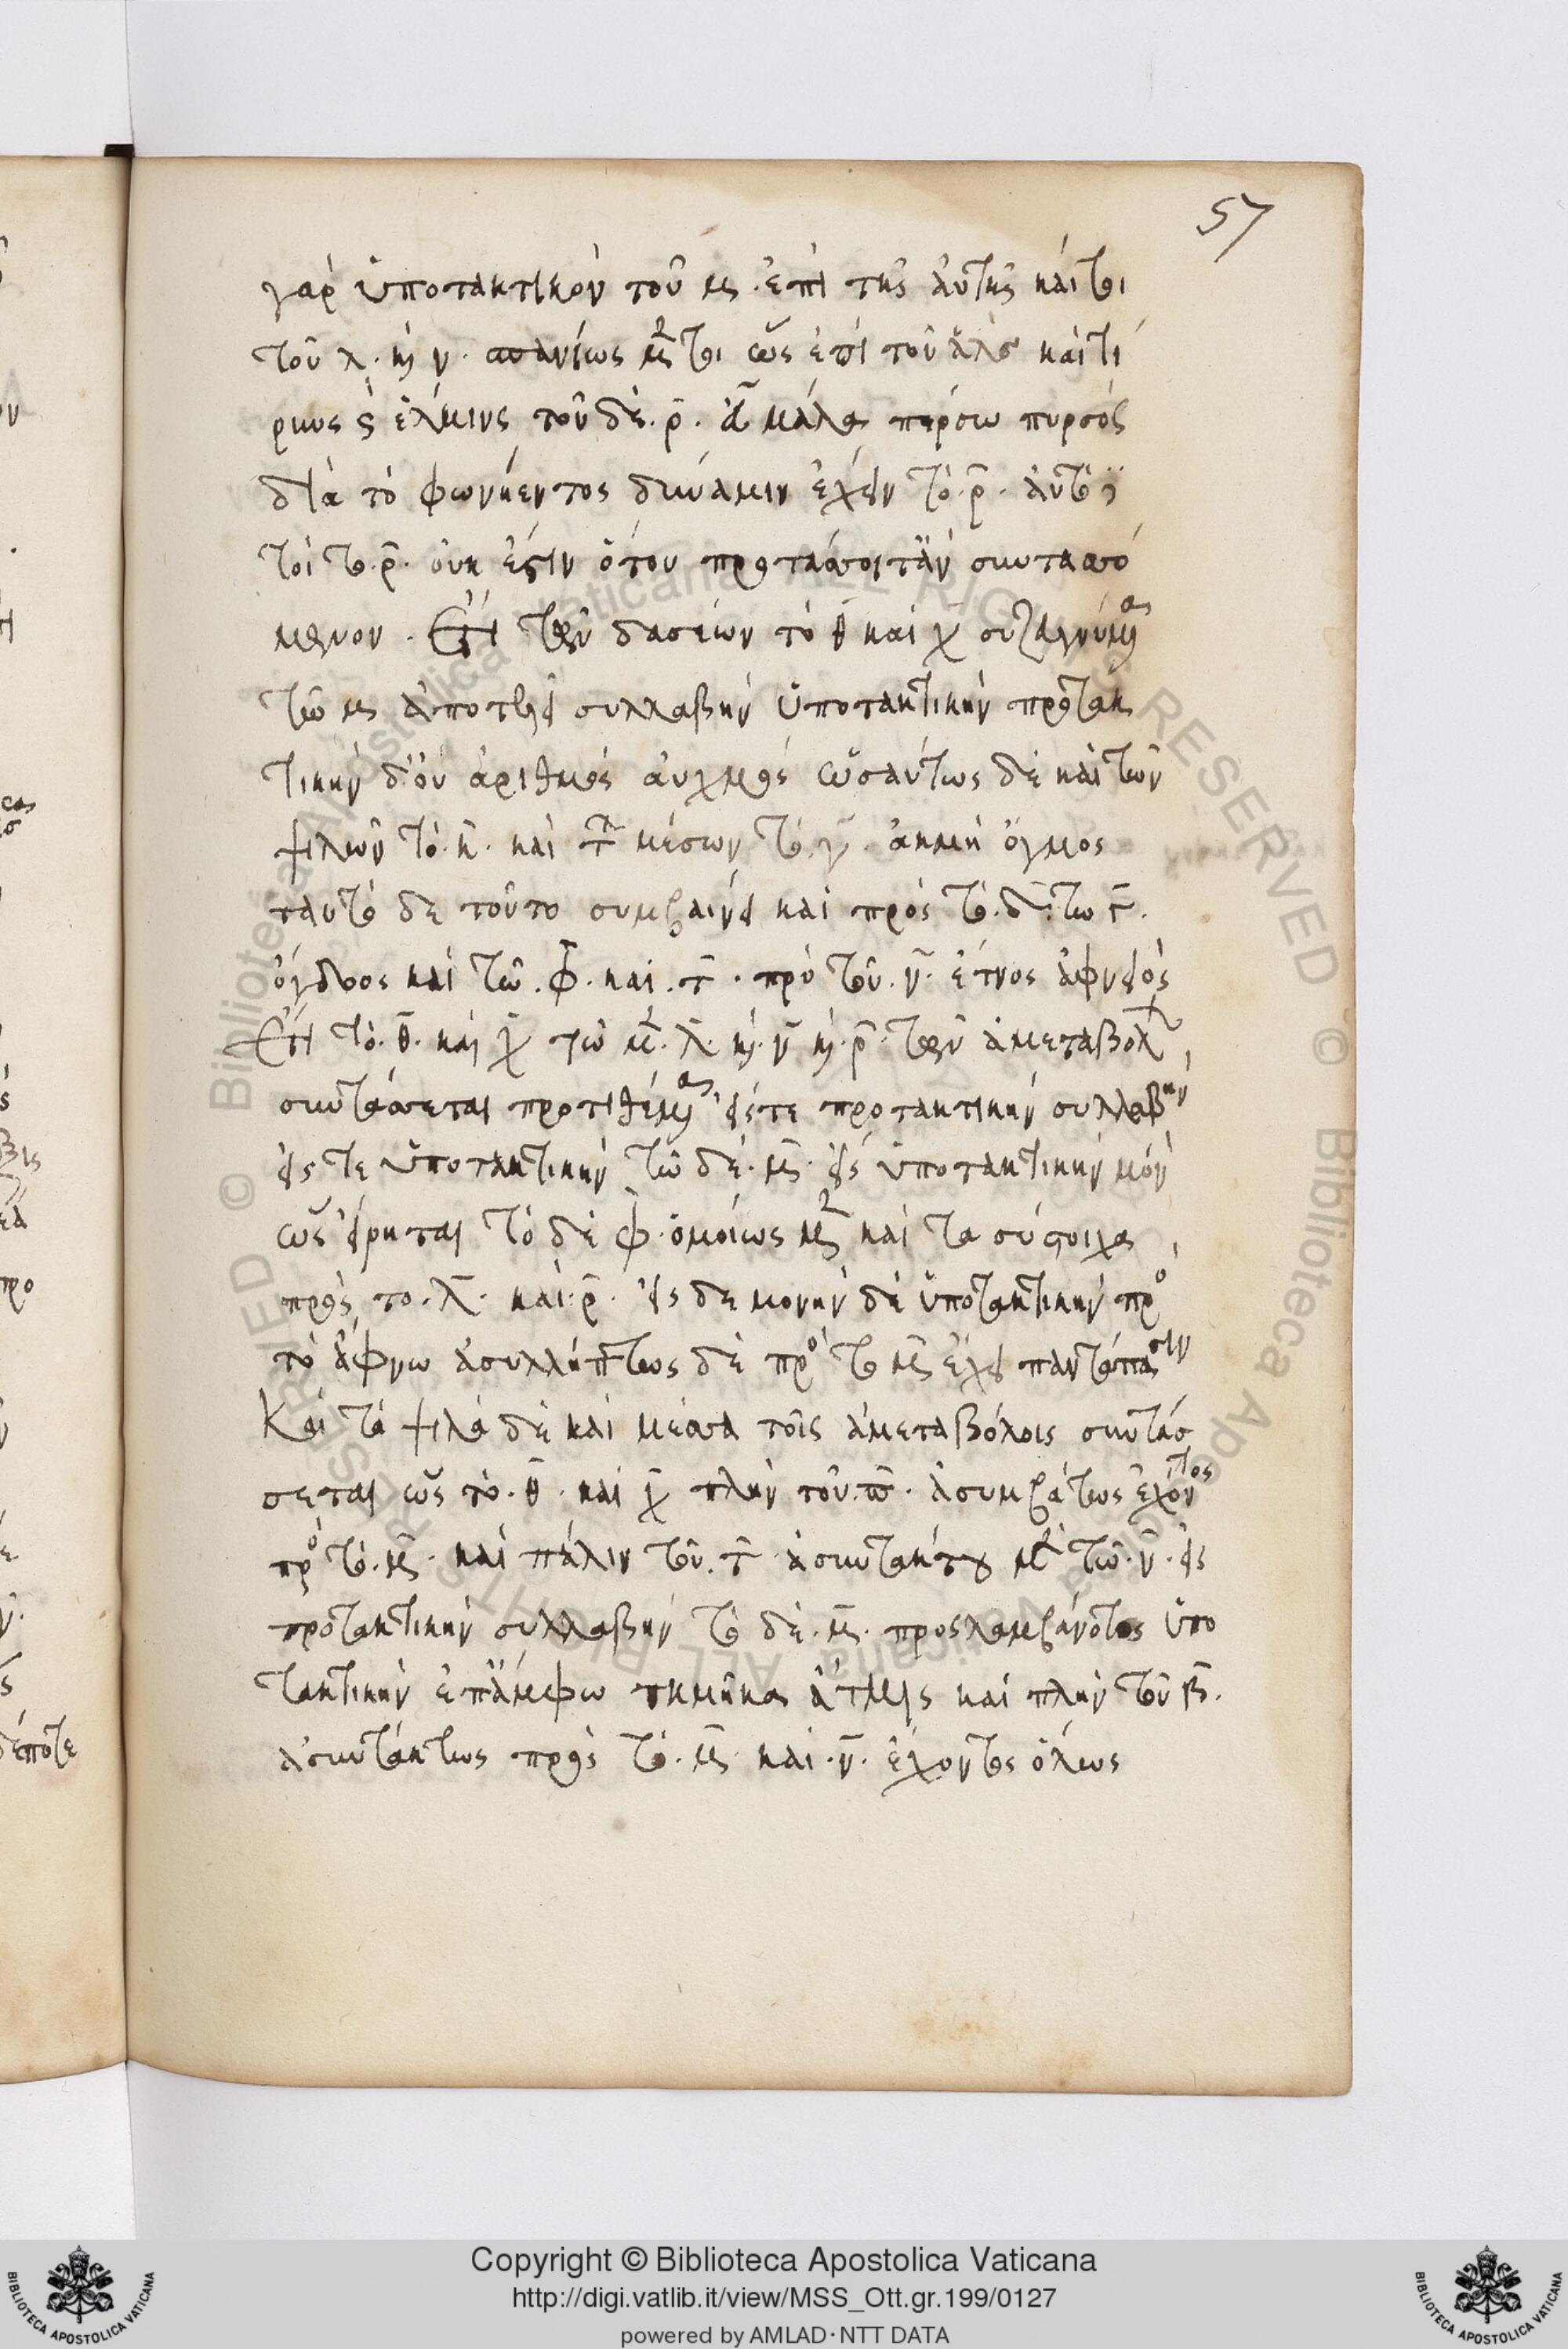 57
γὰρ ὑποτακτικὸν τοῦ μ. ἐπὶ τῆς αὐτῆς καίτοι
τοῦ λ. καὶ ν. σπανίως μέντοι ὡς ἐπὶ τοῦ ἅλς καὶ τί
ρυνς ς ἕλμινς τοῦ δὲ. ρ̄. μάλα πόρσω πυρσός
διὰ τὸ φωνήεντος δύναμιν ἔχειν τὸ. ρ̄. αὐτὸ
τοι το. ρ̄. οὐκ ἔστιν ὅτου προτάσσοιτ' ἂν συντασσό
μενον. Ἔτι τῶν δασέων τὸ θ̄ καὶ χ̄ συζευγνύμενα
τῷ μ ἀποτελεῖ συλλαβὴν ὑποτακτικὴν προτακ
τικὴν δ' οὔ ἀριθμός αὐχμός ὡσαύτως δὲ καὶ τῶν
ψιλῶν τὸ. κ̄. καὶ τῶν μέσων τὸ. γ̄. ἀκμὴ ὄγμος
ταυτὸ δὲ τοῦτο συμβαίνει καὶ πρὸς τὸ. δ̄. τω γ̄.
ὄγδοος καὶ τῶ. φ̄. καὶ. τ̄. πρὸ τοῦ. ν̄. ἔτνος ἀφνειός
Ἔτι τὸ. θ̄. καὶ χ̄ τῶ μὲν. λ̄. καὶ. ν̄ καὶ. ρ̄. τῶν ἀμεταβόλων
συντάσσεται προτιθέμενα εἴς τε προτακτικὴν συλλαβὴν
εἴς τε ὑποτακτικὴν τῶ δὲ. μ̄. εἰς ὑποτακτικὴν μόνην
ὡς εἴρηται τὸ δὲ φ. ὁμοίως μὲν καὶ τὰ σύστοιχα
πρὸς το. λ̄. καὶ. ρ̄. εἰς δὲ μονὴν δὲ ὑποτακτικὴν πρὸς
τὸ ἄφνω ἀσυλλήπτως δὲ πρὸς τὸ μ̄ ἔχει παντάπασιν
Καὶ τὰ ψιλὰ δὲ καὶ μέσσα τοῖς ἀμεταβόλοις συντάσ
σεται ὡς τὸ. θ̄. καὶ χ̄ πλὴν τοῦ. π̄. ἀσυμβάτως ἔχοντος
πρὸς τὸ. μ̄. καὶ πάλιν τοῦ. τ̄. ἀσυντάκτου μὲν τῶ. ν̄. εἰς
προτακτικὴν συλλαβὴν τὸ δὲ. μ̄. προςλαμβάνοτος ὑπο
τακτικὴν ἐπ' ἄμφω τμῆμα ἀτμὶς καὶ πλὴν τοῦ β̄.
ἀσυντάκτως πρὸς τὸ. μ̄. καὶ. ν̄. ἔχοντος ὅλως
Copyright © Biblioteca Apostolica Vaticana
http://digi.vatlib.it/view/MSS_Ott.gr.199/0127
powered by AMLAD·NTT DATA